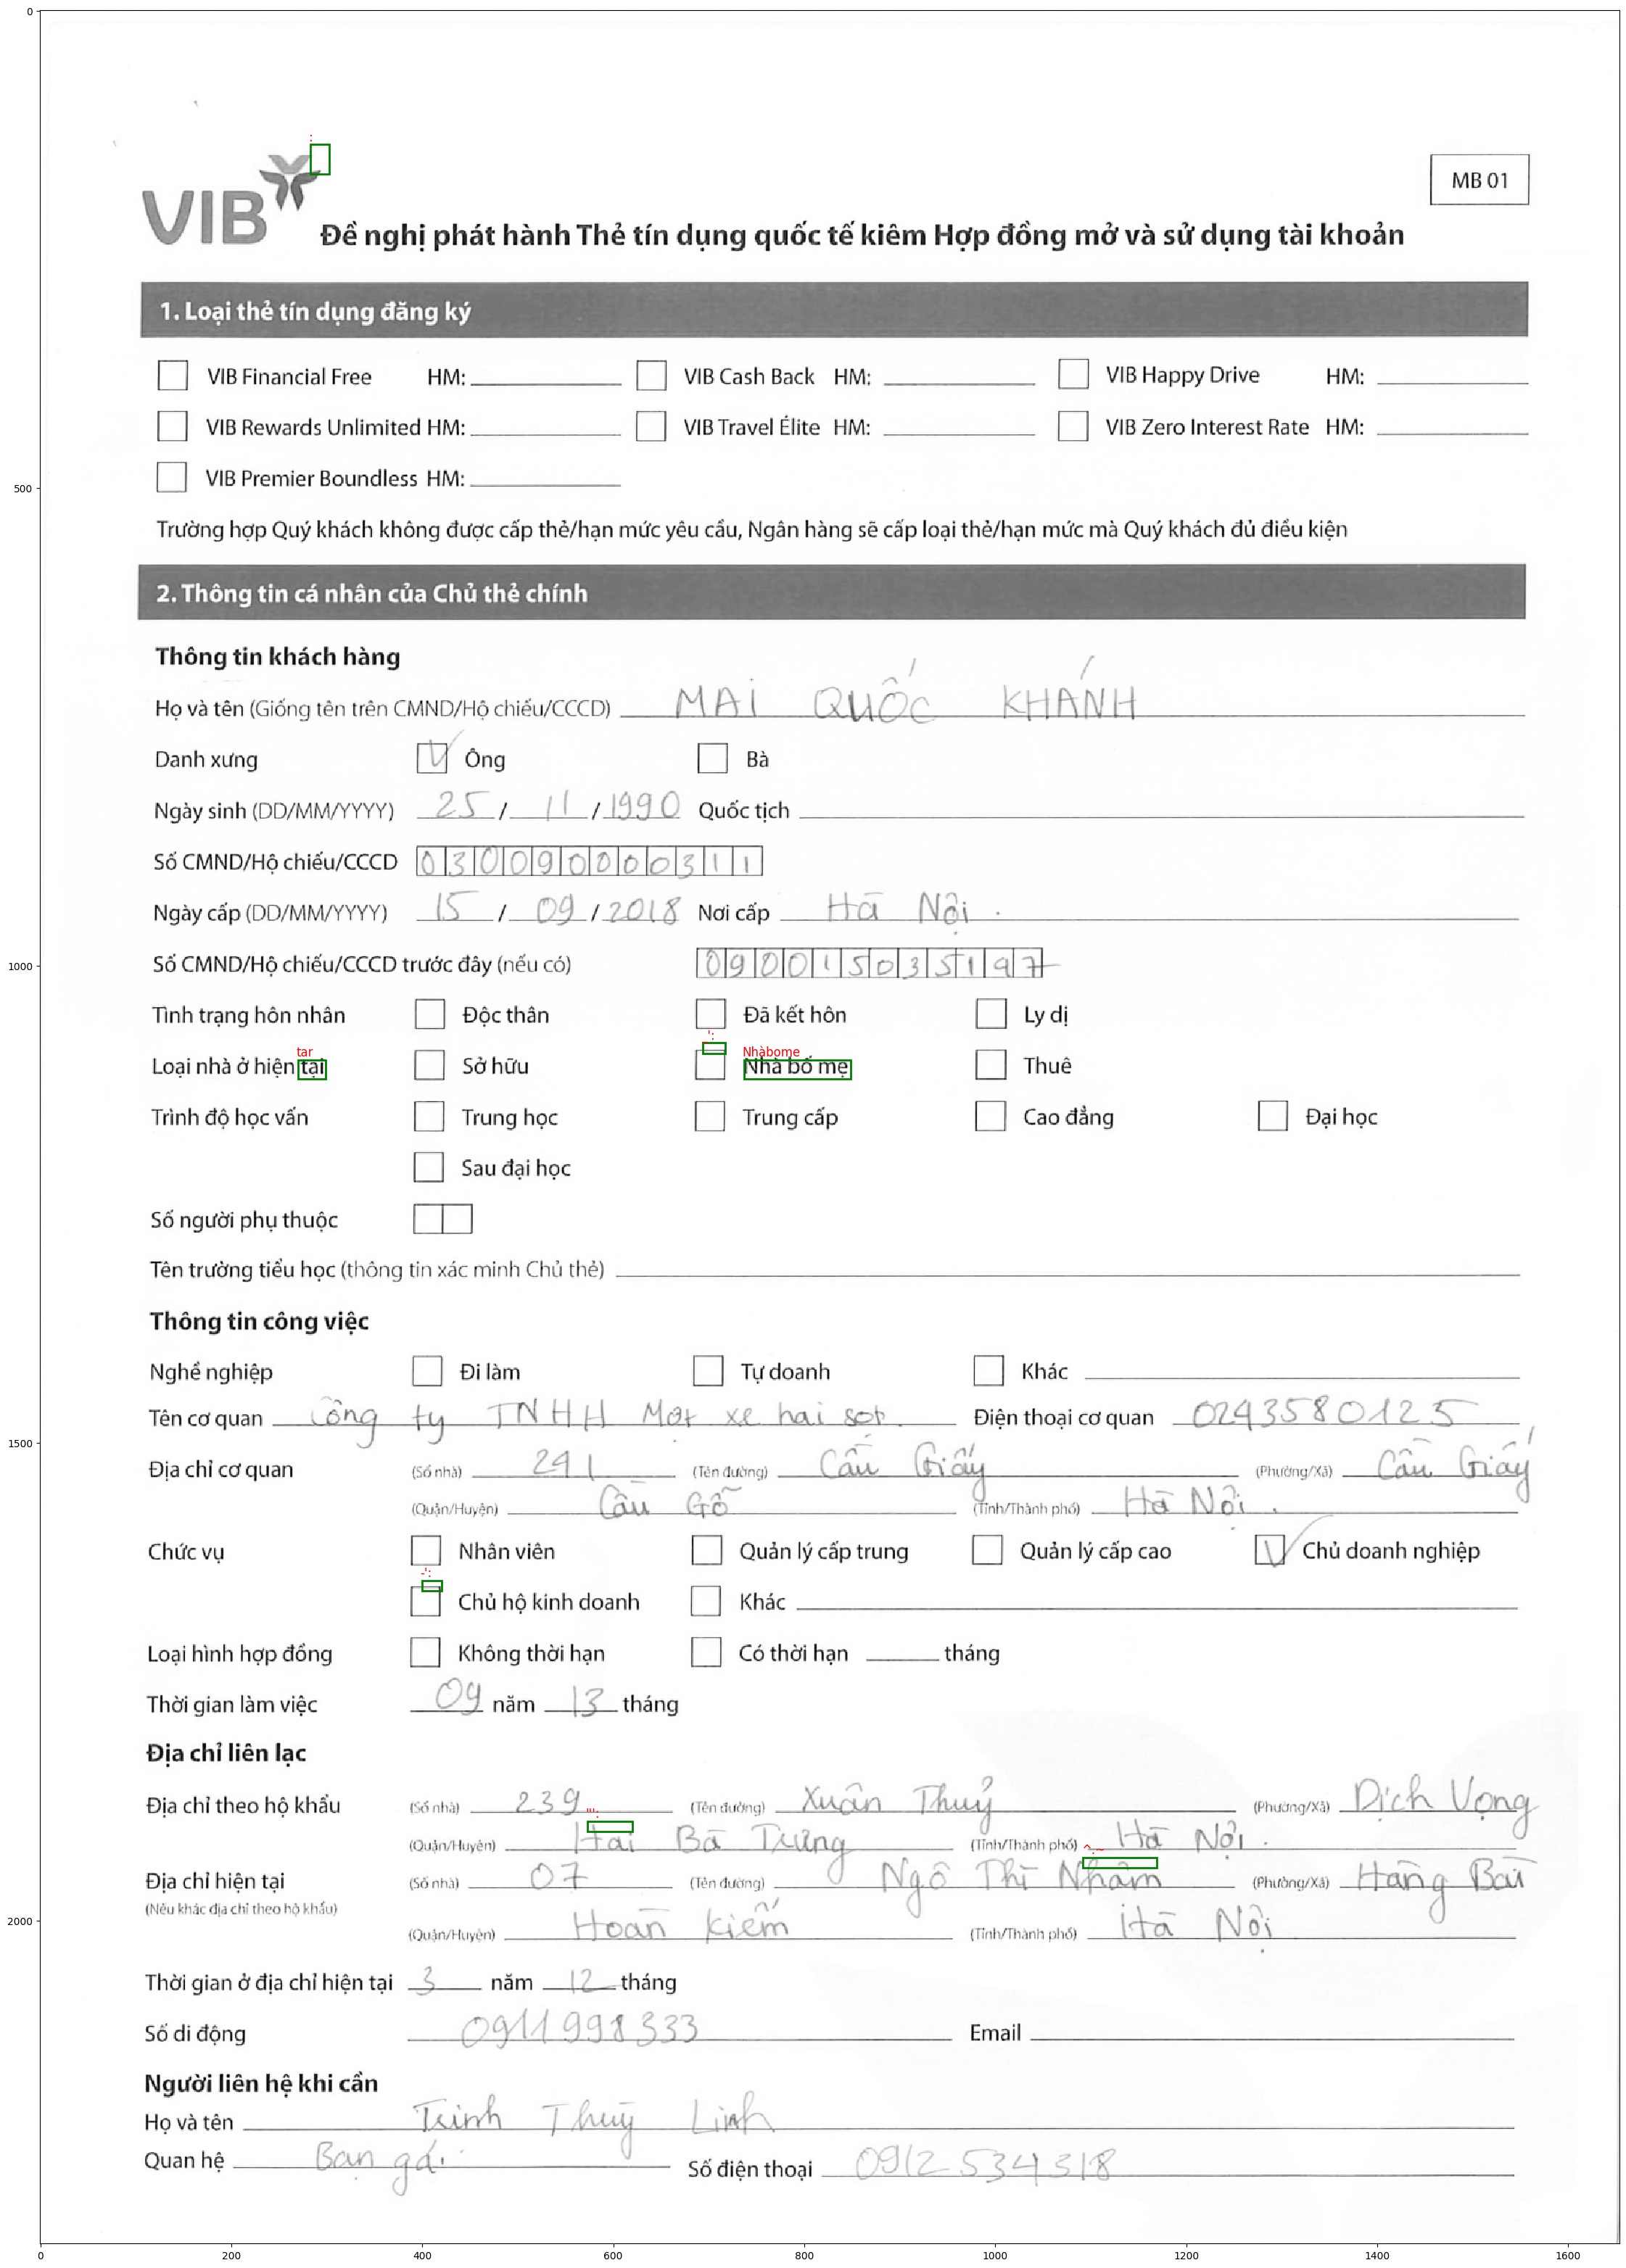 VIB
MB 01
Đề nghị phát hành Thẻ tín dụng quốc tế kiêm Hợp đồng mở và sử dụng tài khoản
1. Loại thẻ tín dụng đăng ký
VIB Financial Free HM: VIB Cash Back HM: VIB Happy Drive HM:
VIB Rewards Unlimited HM: VIB Travel Élite HM: VIB Zero Interest Rate HM:
VIB Premier Boundless HM:
Trường hợp Quý khách không được cấp thẻ/hạn mức yêu cầu, Ngân hàng sẽ cấp loại thẻ/hạn mức mà Quý khách đủ điều kiện
2. Thông tin cá nhân của Chủ thẻ chính
Thông tin khách hàng
Họ và tên (Giống tên trên CMND/Hộ chiếu/CCCD) MAI QUỐC KHÁNH
Danh xưng Ông Bà
Ngày sinh (DD/MM/YYYY) 25 / 11 / 1990 Quốc tịch
Số CMND/Hộ chiếu/CCCD 030090000311
Ngày cấp (DD/MM/YYYY) 15 / 09 / 2018 Nơi cấp Hà Nội.
Số CMND/Hộ chiếu/CCCD trước đây (nếu có) 090015035197
Tình trạng hôn nhân Độc thân Đã kết hôn Ly dị
tar Nhàbome
Loại nhà ở hiện tại Sở hữu Nhà bố mẹ Thuê
Trình độ học vấn Trung học Trung cấp Cao đẳng Đại học
Sau đại học
Số người phụ thuộc
Tên trường tiểu học (thông tin xác minh Chủ thẻ)
Thông tin công việc
Nghề nghiệp Đi làm Tự doanh Khác
Tên cơ quan Công ty TNHH Một xe hai sọt. Điện thoại cơ quan 0243580125
Địa chỉ cơ quan (Số nhà) 241 (Tên đường) Cầu Giấy (Phường/Xã) Cầu Giấy
(Quận/Huyện) Cầu Gỗ (Tỉnh/Thành phố) Hà Nội.
Chức vụ Nhân viên Quản lý cấp trung Quản lý cấp cao Chủ doanh nghiệp
Chủ hộ kinh doanh Khác
Loại hình hợp đồng Không thời hạn Có thời hạn tháng
Thời gian làm việc 09 năm 13 tháng
Địa chỉ liên lạc
Địa chỉ theo hộ khẩu (Số nhà) 239 (Tên đường) Xuân Thuỷ (Phường/Xã) Dịch Vọng
(Quận/Huyện) Hai Bà Trưng (Tỉnh/Thành phố) Hà Nội.
Địa chỉ hiện tại (Số nhà) 07 (Tên đường) Ngô Thì Nhậm (Phường/Xã) Hàng Bài
(Nếu khác địa chỉ theo hộ khẩu)
(Quận/Huyện) Hoàn Kiếm (Tỉnh/Thành phố) Hà Nội
Thời gian ở địa chỉ hiện tại 3 năm 12 tháng
Số di động 0911998333 Email
Người liên hệ khi cần
Họ và tên Trịnh Thuỳ Linh
Quan hệ Bạn gái. Số điện thoại 0912534318